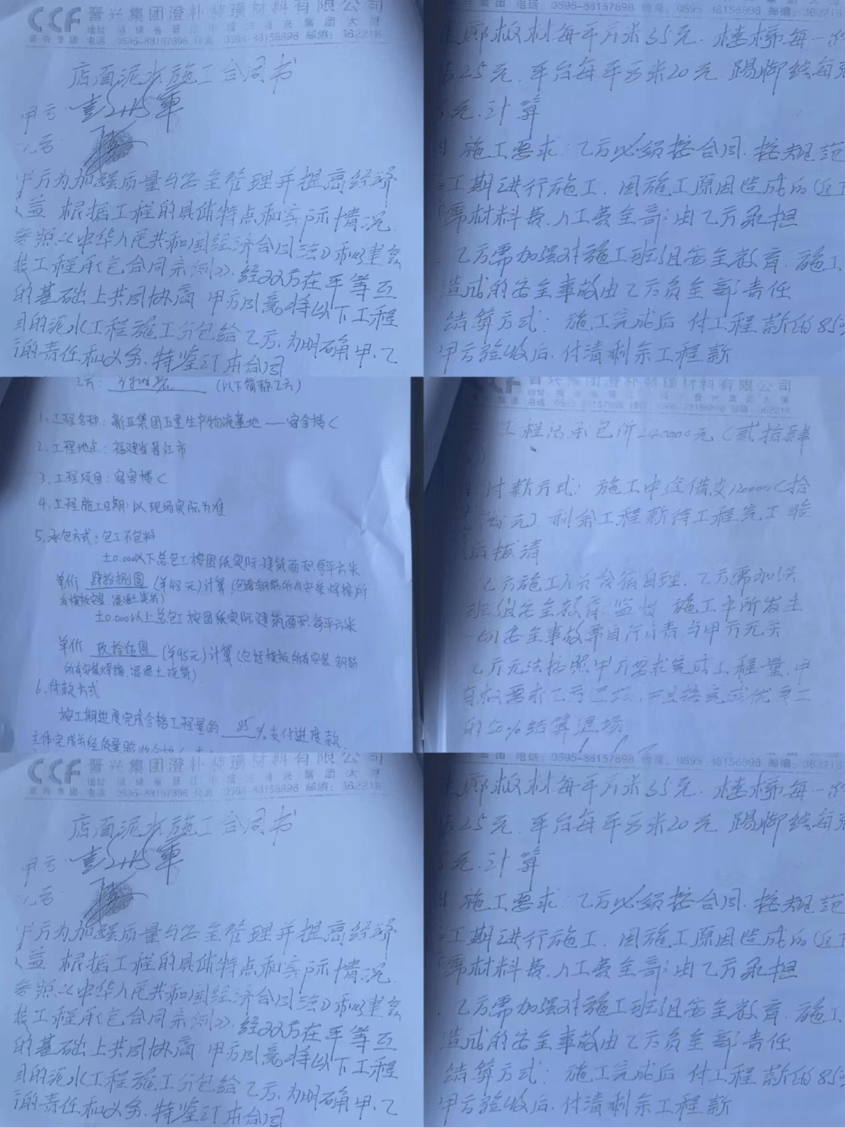 CCF 晋兴集团澄补砖璜材料有限公司
店面泥水施工合同书
甲方
乙方
甲方为加强质量与安全管理并提高经济
效益 根据工程的具体特点和实际情况
参照《中华人民共和国经济合同法》和《建安
装工程承包合同条例》，经双方在平等互
的基础上共同协商 甲方同意将以下工程
目的泥水工程施工分包给乙方，为明确甲、乙
方的责任和义务，特签订本合同
电话：0595-88157898 传真：0595-88158898 邮编：362216
廊板材每平方米35元．楼梯每一
25元．平台每平方米20元 踢脚线每
元．计算
施工要求：乙方必须按合同．按规范
工期进行施工．因施工原因造成的
需材料费．人工费全部由乙方承担
乙方需加强对施工班组安全教育．施工
造成的安全事故由乙方负全部责任
结算方式：施工完成后 付工程款的85
甲方验收后．付清剩余工程款
乙方： （以下简称乙方）
1、工程名称：新亚集团五里生产物流基地——宿舍楼C
2、工程地点：福建省晋江市
3、工程项目：宿舍楼C
4、工程施工日期：以现场实际为准
5、承包方式：包工不包料
±0.000以下总包工按图纸实际建筑面积每平方米
单价 肆拾捌圆 （¥48元）计算
±0.000以上总包工按图纸实际建筑面积每平方米
单价 玖拾伍圆 （¥95元）计算（包括模板所有安装、钢筋
所有安装焊接、混凝土浇筑）
6、付款方式
按工期进度完成合格工程量的 85 %支付进度款，
CCF 晋兴集团澄补砖璜材料有限公司
工程总承包价240000元（贰拾肆
付款方式：施工中途借支120000（拾
元）剩余工程款待工程完工验
后拨清
乙方施工人员食宿自理．乙方需加强
班组安全教育 监督 施工中所发生
一切安全事故等自行负责与甲方无关
乙方无法按照甲方要求完成工程量．甲
的50%结算退场
CCF 晋兴集团澄补砖璜材料有限公司
店面泥水施工合同书
甲方
乙方
甲方为加强质量与安全管理并提高经济
效益 根据工程的具体特点和实际情况
参照《中华人民共和国经济合同法》和《建安
装工程承包合同条例》，经双方在平等互
的基础上共同协商 甲方同意将以下工程
目的泥水工程施工分包给乙方，为明确甲、乙
方的责任和义务，特签订本合同
电话：0595-88157898 传真：0595-88158898 邮编：362216
廊板材每平方米35元．楼梯每一
25元．平台每平方米20元 踢脚线每
元．计算
施工要求：乙方必须按合同．按规范
工期进行施工．因施工原因造成的
需材料费．人工费全部由乙方承担
乙方需加强对施工班组安全教育．施工
造成的安全事故由乙方负全部责任
结算方式：施工完成后 付工程款的85
甲方验收后．付清剩余工程款